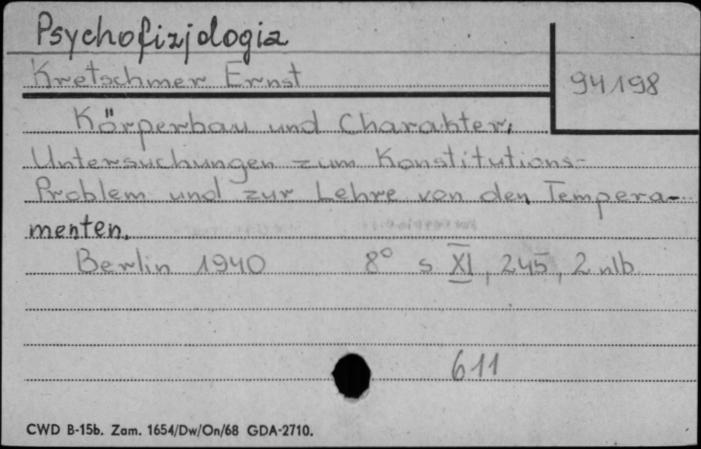 Psychofizjologia
Kretschmer Ernst
94198
Körperbau und Charakter,
Untersuchungen zum Konstitutions-
Problem und zur Lehre von den Tempera-
menten.
Berlin 1940 8° s XI, 245, 2 nlb
611
CWD B-15b. Zam. 1654/Dw/On/68 GDA-2710.